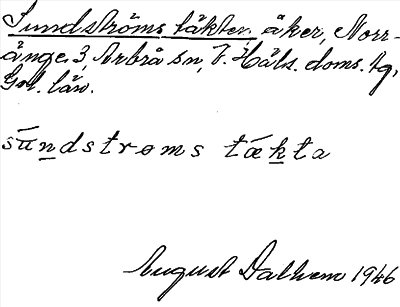 Sundströms täkter, åker, Norr-
änge 3, Arbrå sn, V. Häls. doms. tg,
Gvl. län.
sú̄n̲dstrøms tǽk̲ta
August Dalhem 1946